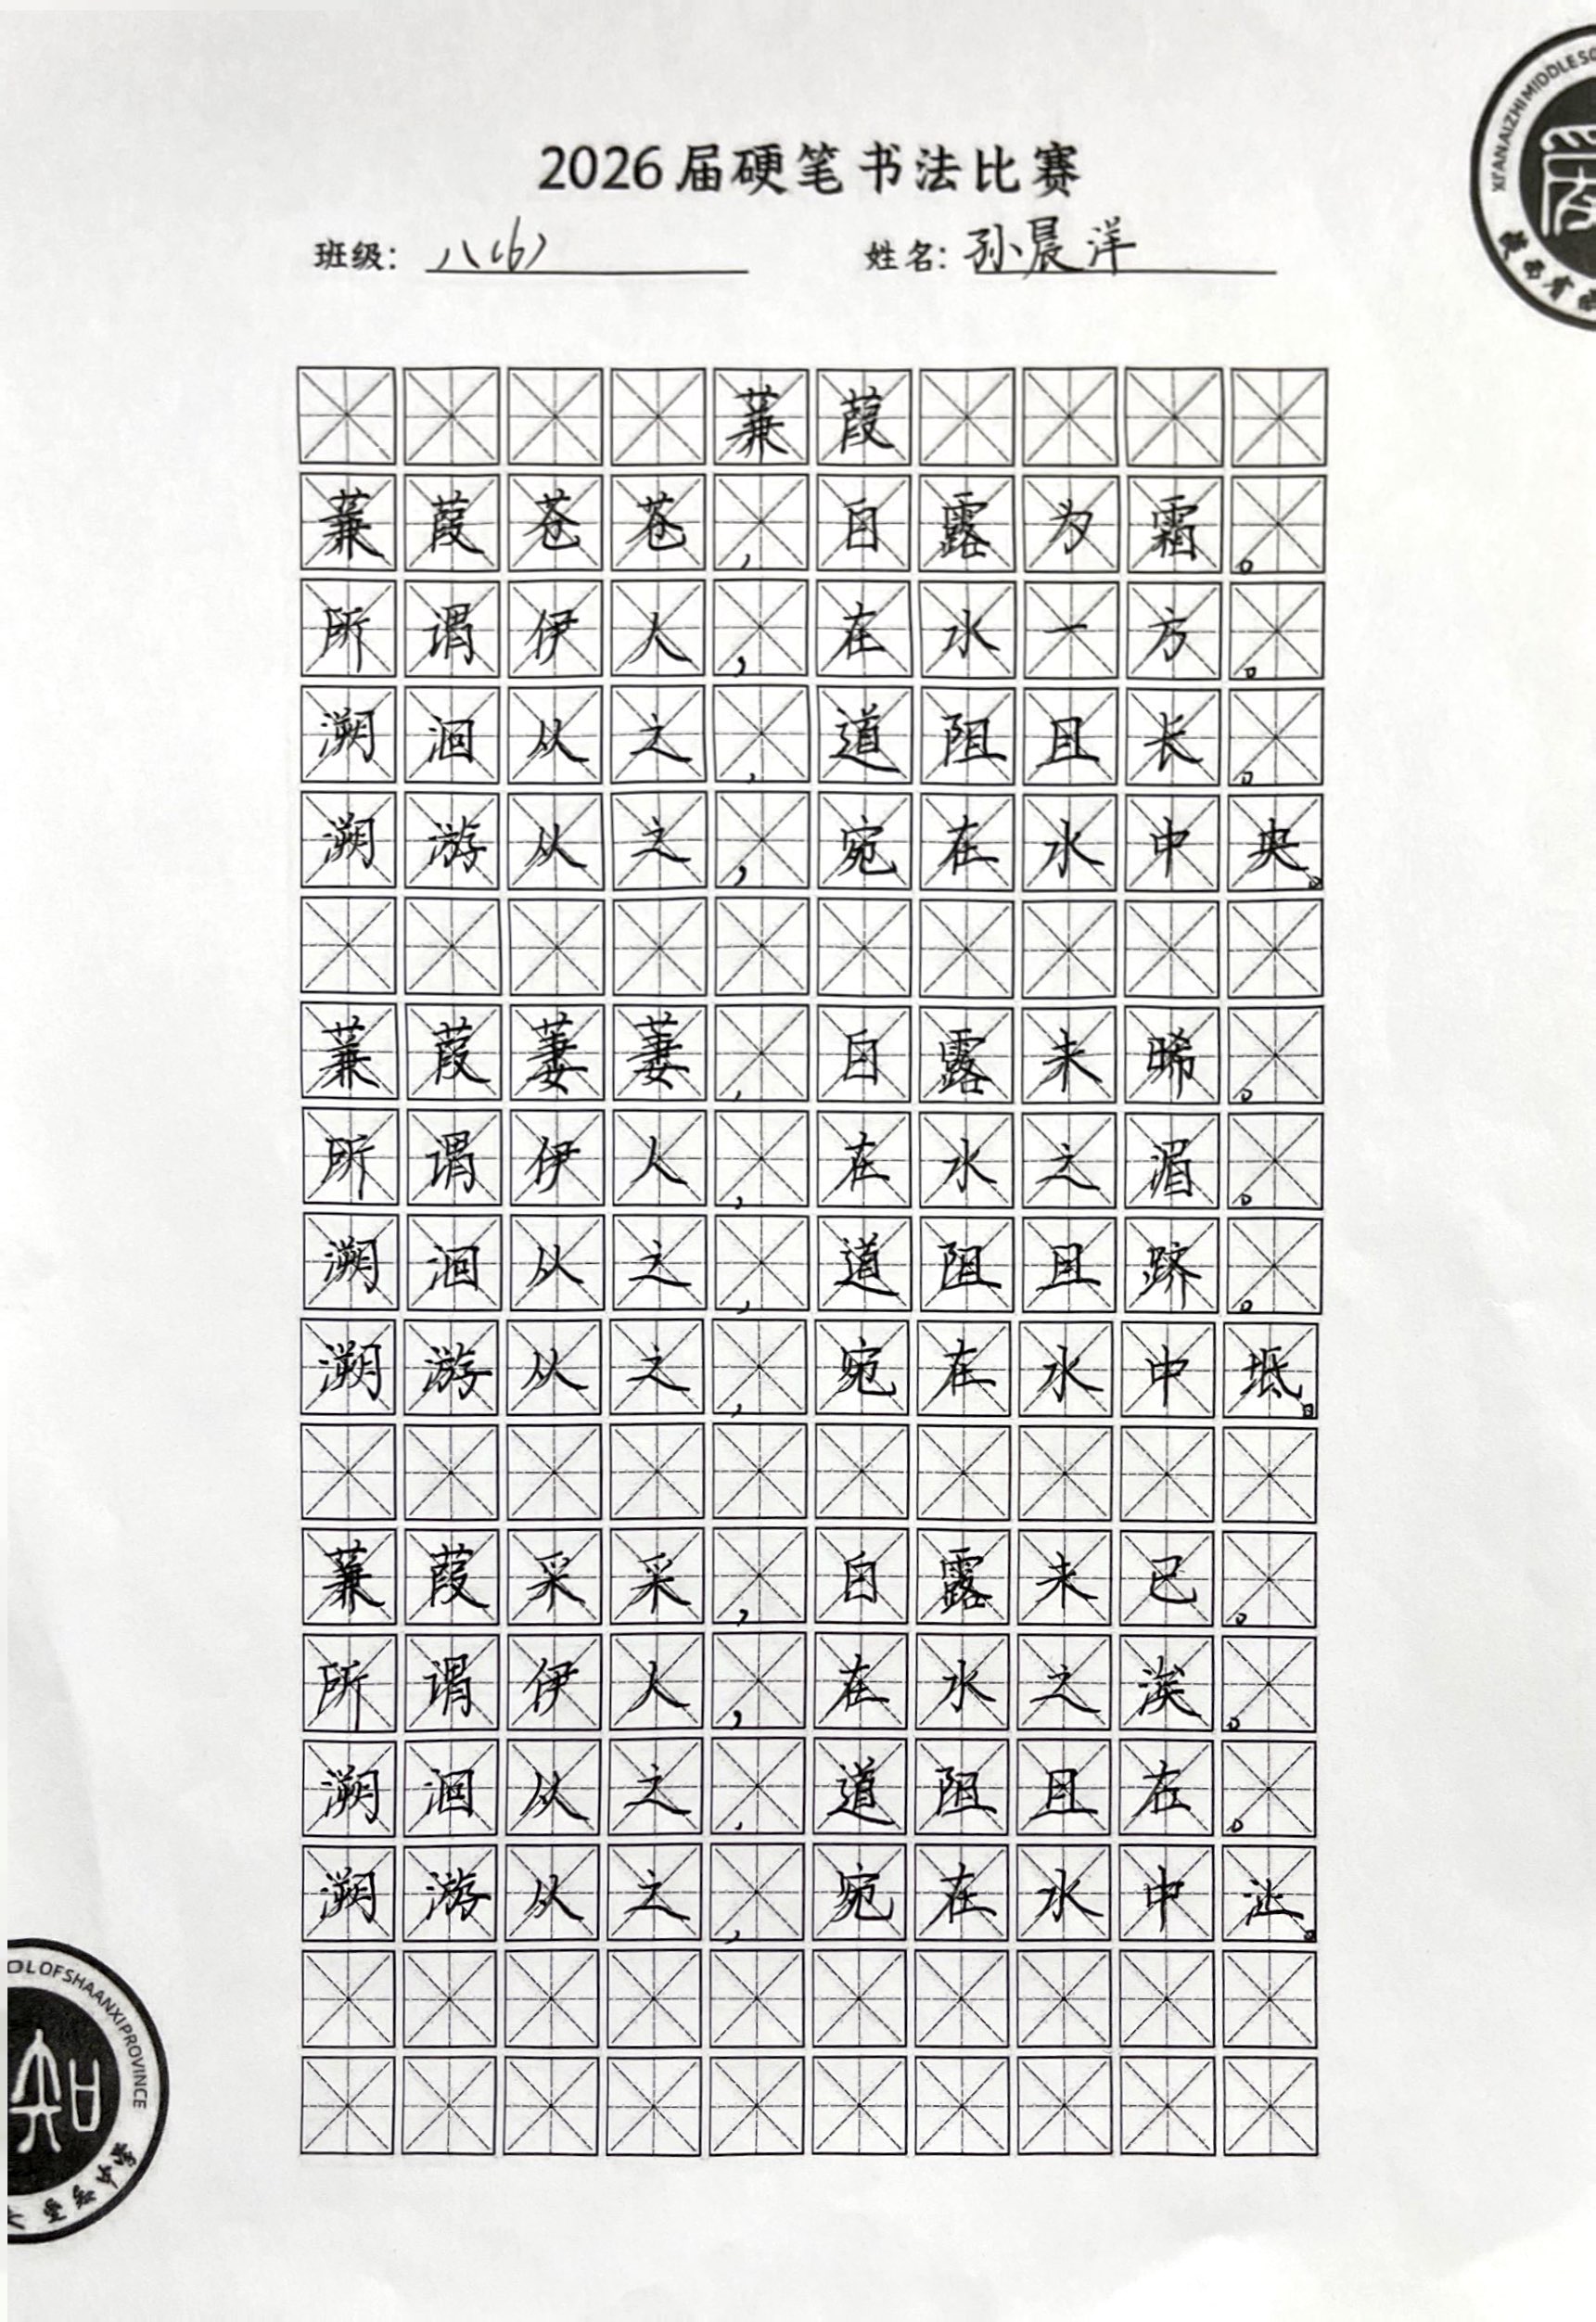 XI'ANAIZHI MIDDLE SC
陕西省
2026届硬笔书法比赛
班级： 八(6) 姓名： 孙晨洋
蒹葭
蒹葭苍苍，白露为霜。
所谓伊人，在水一方。
溯洄从之，道阻且长。
溯游从之，宛在水中央。
蒹葭萋萋，白露未晞。
所谓伊人，在水之湄。
溯洄从之，道阻且跻。
溯游从之，宛在水中坻。
蒹葭采采，白露未已。
所谓伊人，在水之涘。
溯洄从之，道阻且右。
溯游从之，宛在水中沚。
OL OF SHAANXI PROVINCE
爱知中学